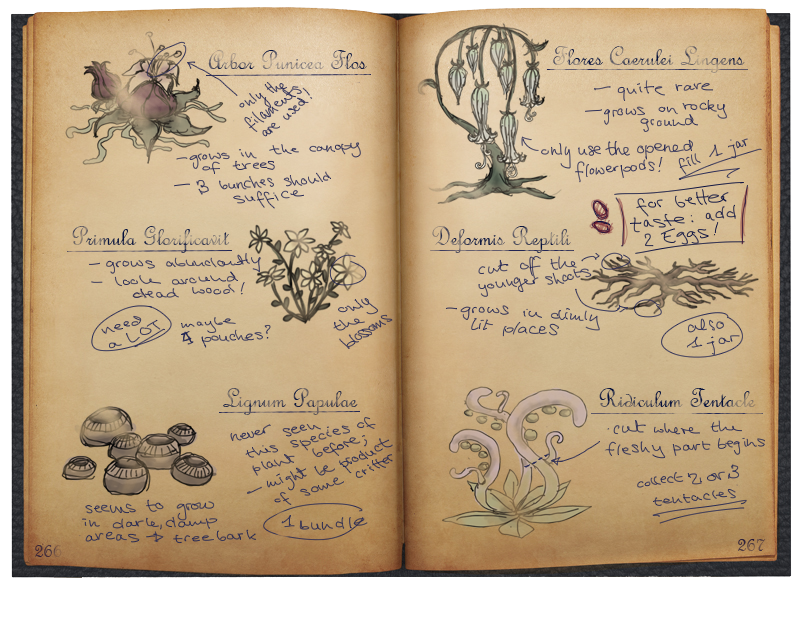 Arbor Punicea Flos
only the
filaments
are used!
– grows in the canopy
of trees
– 3 bunches should
suffice
Primula Glorificavit
– grows abundantly
– look around
dead wood!
need
a LOT
maybe
4 pouches?
only
the
blossoms
Lignum Papulae
never seen
this species of
plant before;
– might be product
of some critter
seems to grow
in dark, damp
areas → tree bark
1 bundle
266
Flores Caerulei Lingens
– quite rare
– grows on rocky
ground
only use the opened
flowerpods!
fill 1 jar
for better
taste: add
2 Eggs!
Deformis Reptili
cut off the
younger shoots
– grows in dimly
lit places
also
1 jar
Ridiculum Tentacle
· cut where the
fleshy part begins
collect 2 or 3
tentacles
267